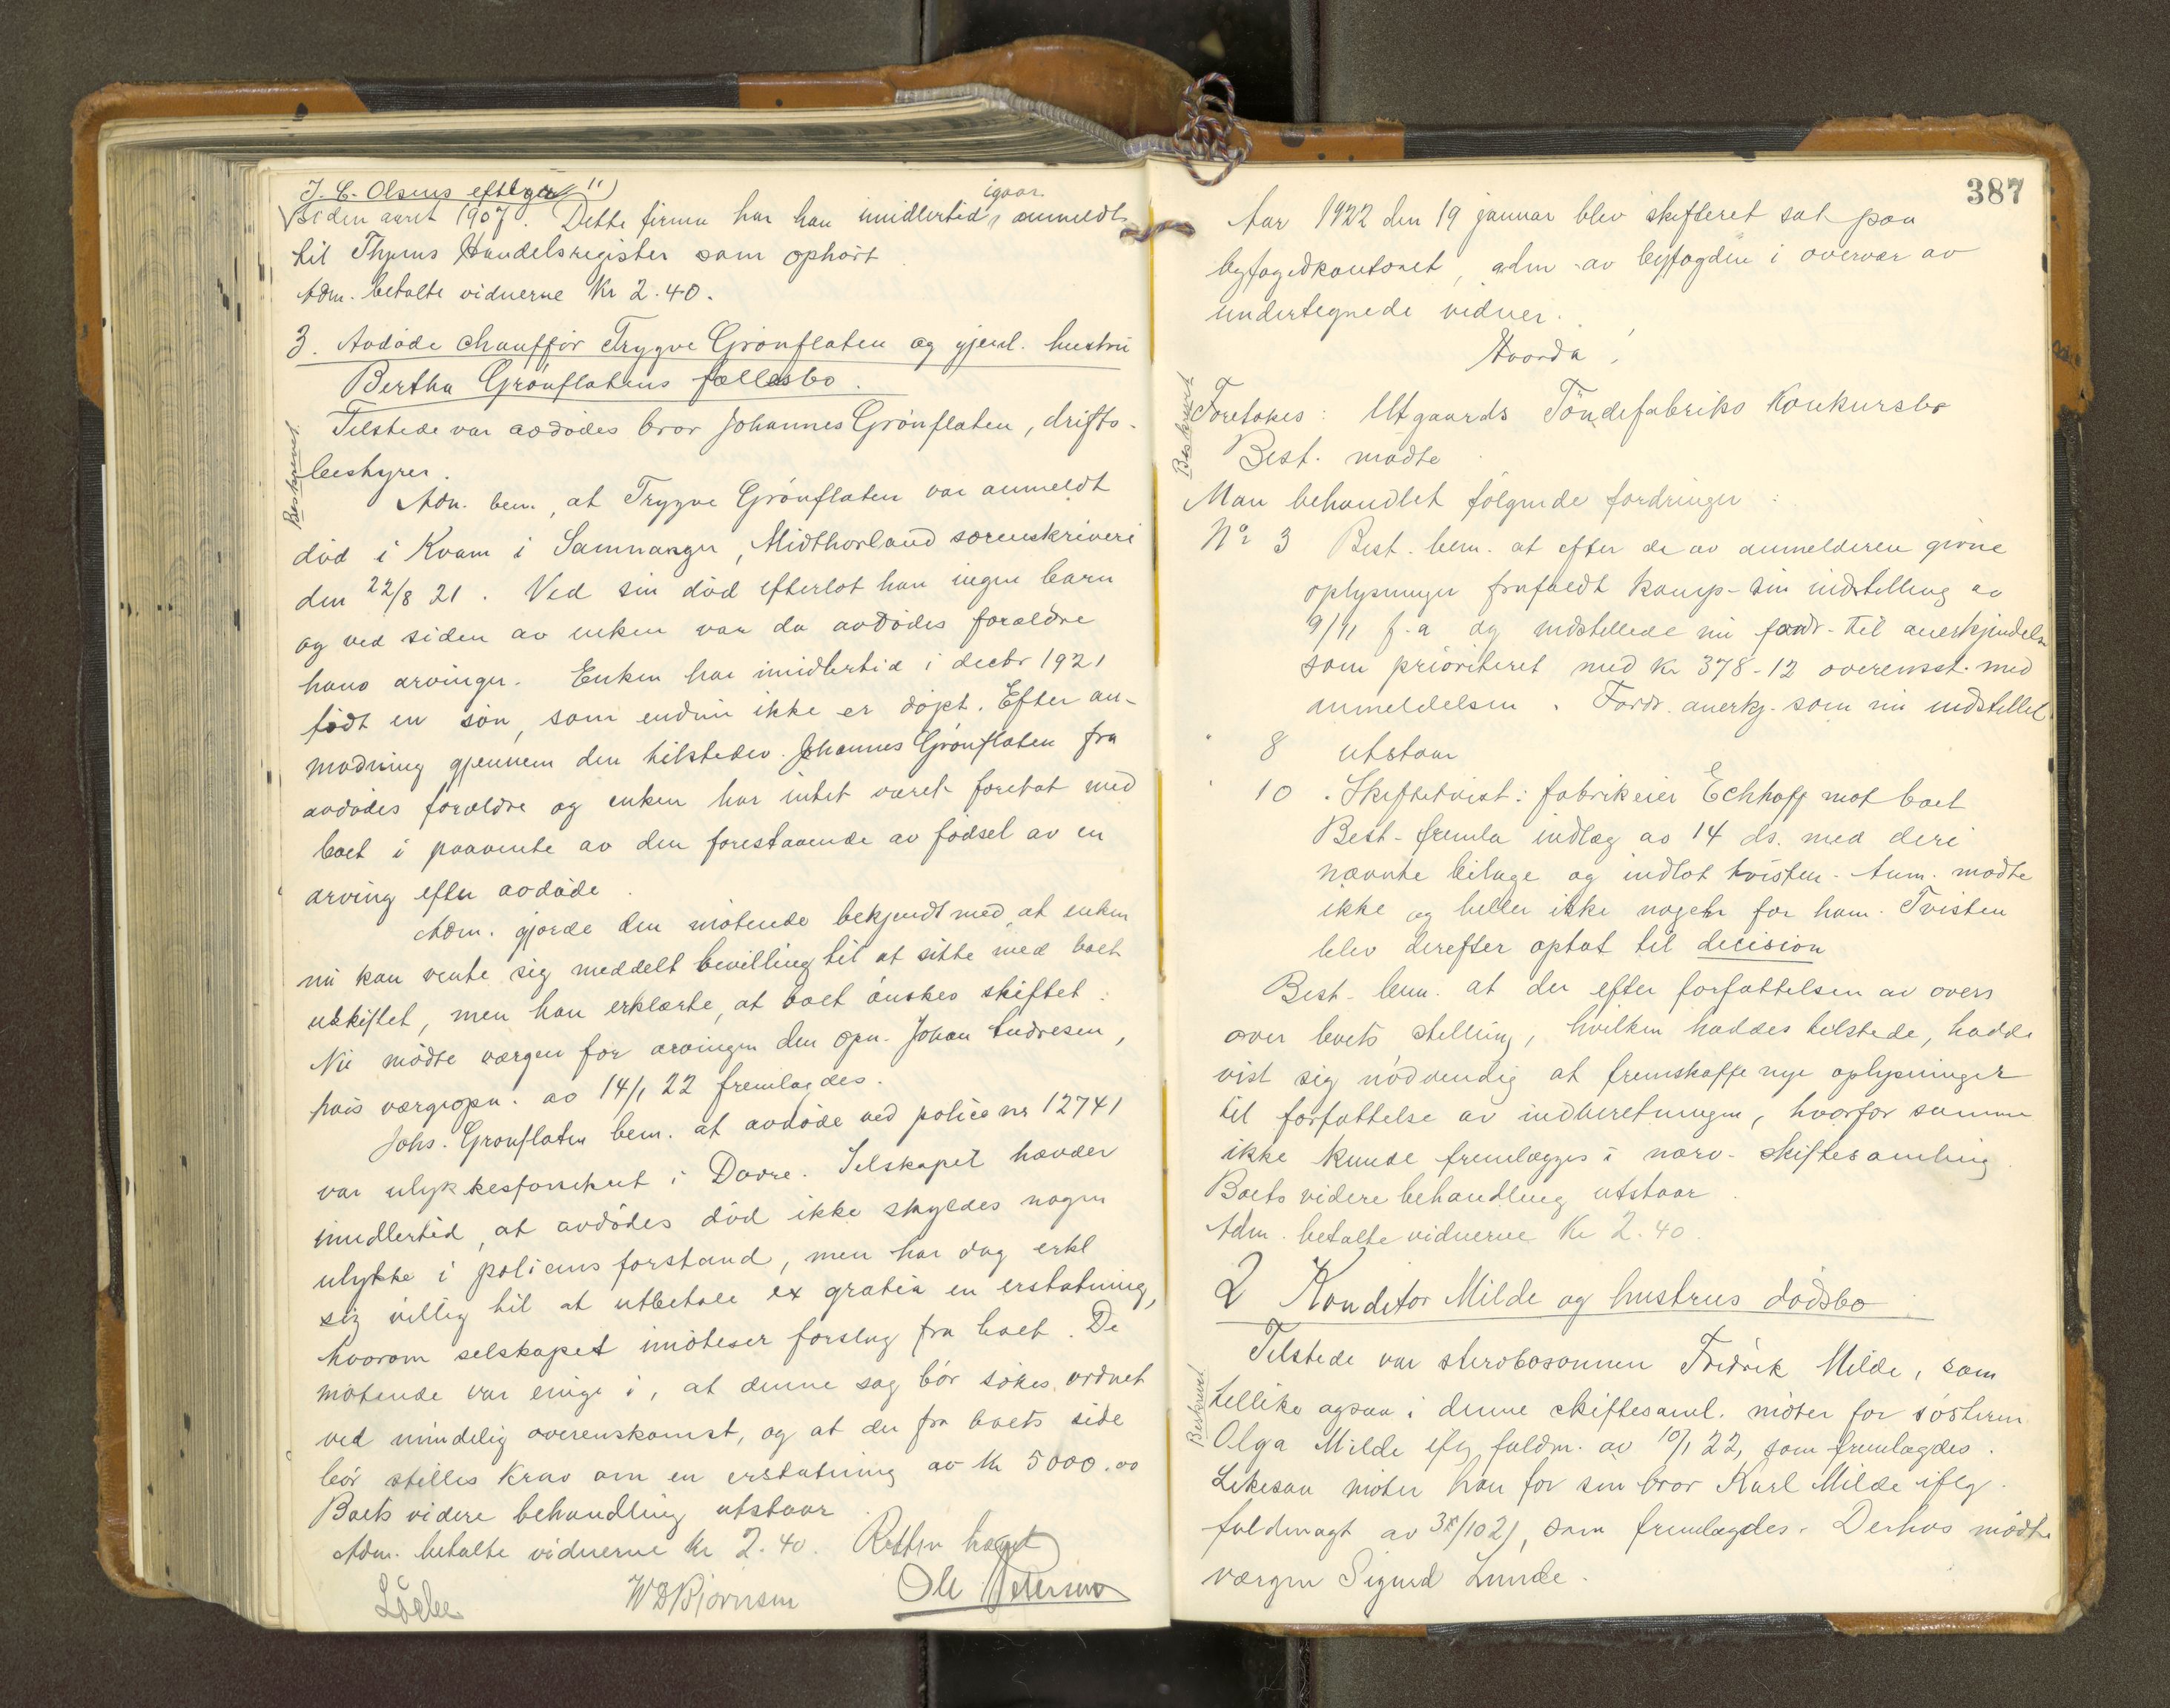 J. C. Olsens eftflgr")
Siden aaret 1907. Dette firma har han imidlertid igaar anmeldt
til Thjems Handelsregister som ophørt
Adm. betalte vidnerne Kr 2.40.
3. Avdøde chauffør Trygve Grønflaten og gjenl. hustru
Bertha Grønflatens fællesbo.
Beskrevet
Tilstede var avdødes bror Johannes Grønflaten, drifts-
bestyrer.
Adm. bem., at Trygve Grønflaten var anmeldt
død i Kvam i Samnanger, Midthorland sorenskriveri
den 22/8 21. Ved sin død efterlot han ingen barn
og ved siden av enken var da avdødes forældre
hans arvinger. Enken har imidlertid i decbr 1921
født en søn, som endnu ikke er døpt. Efter an-
modning gjennem den tilstedev. Johannes Grønflaten fra
avdødes forældre og enken har intet været foretat med
boet i paavente av den forestaaende av fødsel av en
arving efter avdøde.
Adm. gjorde den møtende bekjendt med at enken
nu kan vente sig meddelt bevilling til at sitte med boet
uskiftet, men han erklærte, at boet ønskes skiftet.
Nu mødte værgen for arvingen den opn. Johan Andresen,
hvis værgeopn. av 14/1 22 fremlagdes.
Johs. Grønflaten bem. at avdøde ved police nr 12741
var ulykkesforsikret i Dovre. Selskapet hævder
imidlertid, at avdødes død ikke skyldes nogen
ulykke i policens forstand, men har dog erkl
sig villig til at utbetale ex gratia en erstatning,
hvorom selskapet imøteser forslag fra boet. De
møtende var enige i, at denne sag bør søkes ordnet
ved mindelig overenskomst, og at der fra boets side
bør stilles krav om en erstatning av kr 5000.00
Boets videre behandling utstaar
Adm. betalte vidnerne kr 2.40. Retten hævet
W D Bjørnsen Ole Petersen
387
Aar 1922 den 19 januar blev skifteret sat paa
byfogedkontoret, adm. av byfogden i overvær av
undertegnede vidner.
Hvorda,
Beskrevet
Foretokes: Utgaards Tøndefabriks Konkursbo
Best. mødte
Man behandlet følgende fordringer:
No 3 Best. bem. at efter de av anmelderen givne
oplysninger frafaldt kamp- sin indstilling av
9/11 f.a og indstillede nu fordr. til anerkjendelse
som prioriteret med kr 378-12 overensst. med
anmeldelsen. Fordr. anerkj. som nu indstillet
" 8 utstaar
" 10. Skiftetvist: fabrikeier Echhoff mot boet
Best. fremla indlæg av 14 ds. med deri
nævnte bilage og indlot tvisten. Anm. mødte
ikke og heller ikke nogen for ham. Tvisten
blev derefter optat til decision
Best. bem. at der efter forfattelsen av overs
over boets stilling, hvilken haddes tilstede, hadde
vist sig nødvendig at fremskaffe nye oplysninger
til forfattelse av indberetningen, hvorfor samme
ikke kunde fremlægges i nærv. skiftesamling
Boets videre behandling utstaar.
Adm. betalte vidnerne Kr 2.40.
2 Konditor Milde og hustrus dødsbo
Tilstede var sterbosønnen Fredrik Milde, som
Beskrevet
tillike ogsaa i denne skiftesaml. møter for søsteren
Olga Milde iflg fuldm. av 10/1 22, som fremlagdes.
Likesaa møter han for sin bror Karl Milde iflg.
fuldmagt av 31/10 21, som fremlagdes. Derhos mødte
værgen Sigurd Lunde.